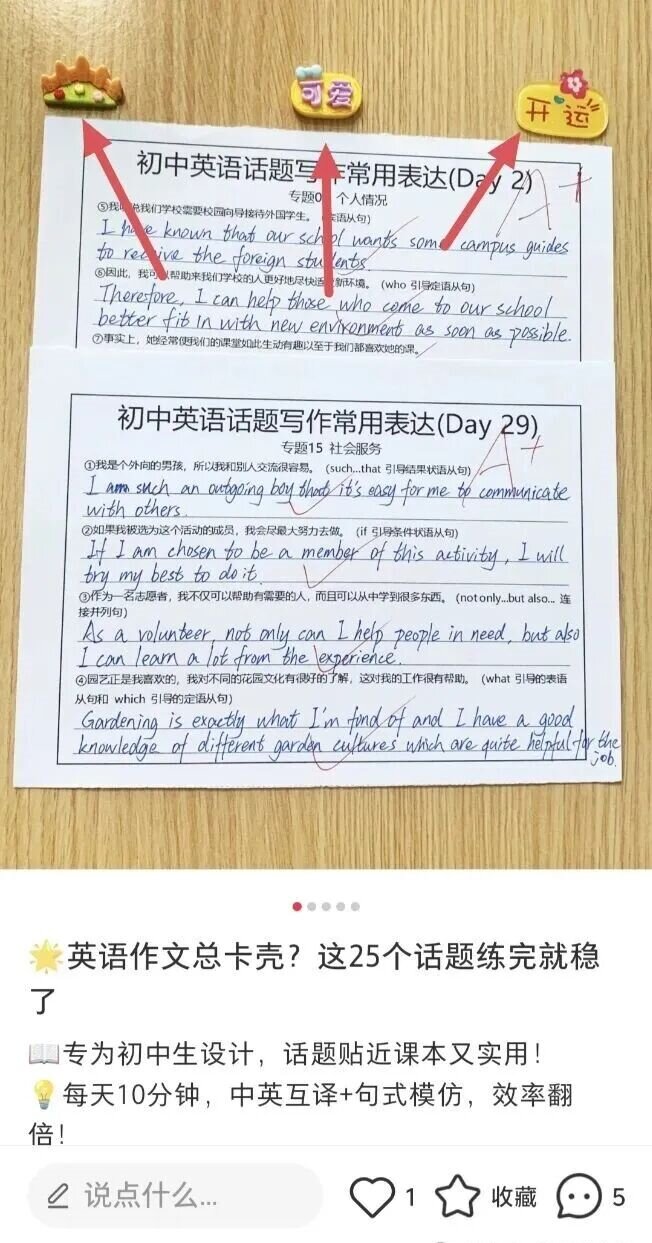 可爱
开运
初中英语话题写作常用表达(Day 2)
A+
个人情况
说我们学校需要校园向导接待外国学生。
I have known that our school wants some campus guides
to receive the foreign students.
⑥因此，我可以帮助来我们学校的人更好地尽快适应新环境。（who 引导定语从句）
Therefore, I can help those who come to our school
better fit in with new environment as soon as possible.
⑦事实上，她经常使我们的课堂如此生动有趣以至于我们都喜欢她的课。
初中英语话题写作常用表达(Day 29)
A+
专题15 社会服务
①我是个外向的男孩，所以我和别人交流很容易。（such...that 引导结果状语从句）
I am such an outgoing boy that it's easy for me to communicate
with others.
②如果我被选为这个活动的成员，我会尽最大努力去做。（if 引导条件状语从句）
If I am chosen to be a member of this activity, I will
try my best to do it.
③作为一名志愿者，我不仅可以帮助有需要的人，而且可以从中学到很多东西。（not only...but also... 连
接并列句）
As a volunteer, not only can I help people in need, but also
I can learn a lot from the experience.
④园艺正是我喜欢的，我对不同的花园文化有很好的了解，这对我的工作很有帮助。（what 引导的表语
从句和 which 引导的定语从句）
Gardening is exactly what I'm fond of and I have a good
knowledge of different garden cultures which are quite helpful for the
job.
🌟英语作文总卡壳？这25个话题练完就稳
了
📖专为初中生设计，话题贴近课本又实用！
💡每天10分钟，中英互译+句式模仿，效率翻
倍！
说点什么...
1
收藏
5